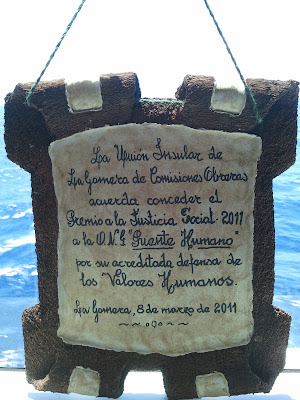 La Unión Insular de
La Gomera de Comisiones Obreras
acuerda conceder el
Premio a la Justicia Social-2011
a la O.N.G "Puente Humano"
por su acreditada defensa de
los Valores Humanos.
La Gomera, 8 de marzo de 2011